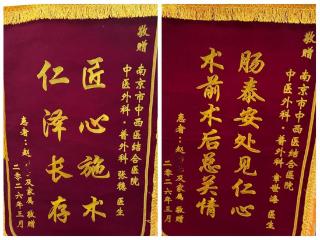 敬赠
南京市中西医结合医院
中医外科·普外科 张穗 医生
匠心施术
仁泽长存
患者:赵 及家属 敬赠
二零二六年三月
敬赠
南京市中西医结合医院
中医外科·普外科 章世海 医生
肠泰安处见仁心
术前术后总关情
患者:赵 及家属 敬赠
二零二六年三月